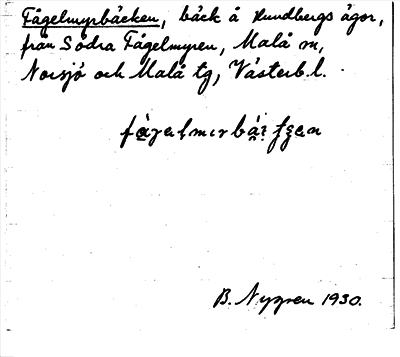 Fågelmyrbäcken, bäck å Hundbergs ägor,
från Södra Fågelmyren, Malå sn,
Norsjö och Malå tg, Västerb. l.
B. Nygren 1930.